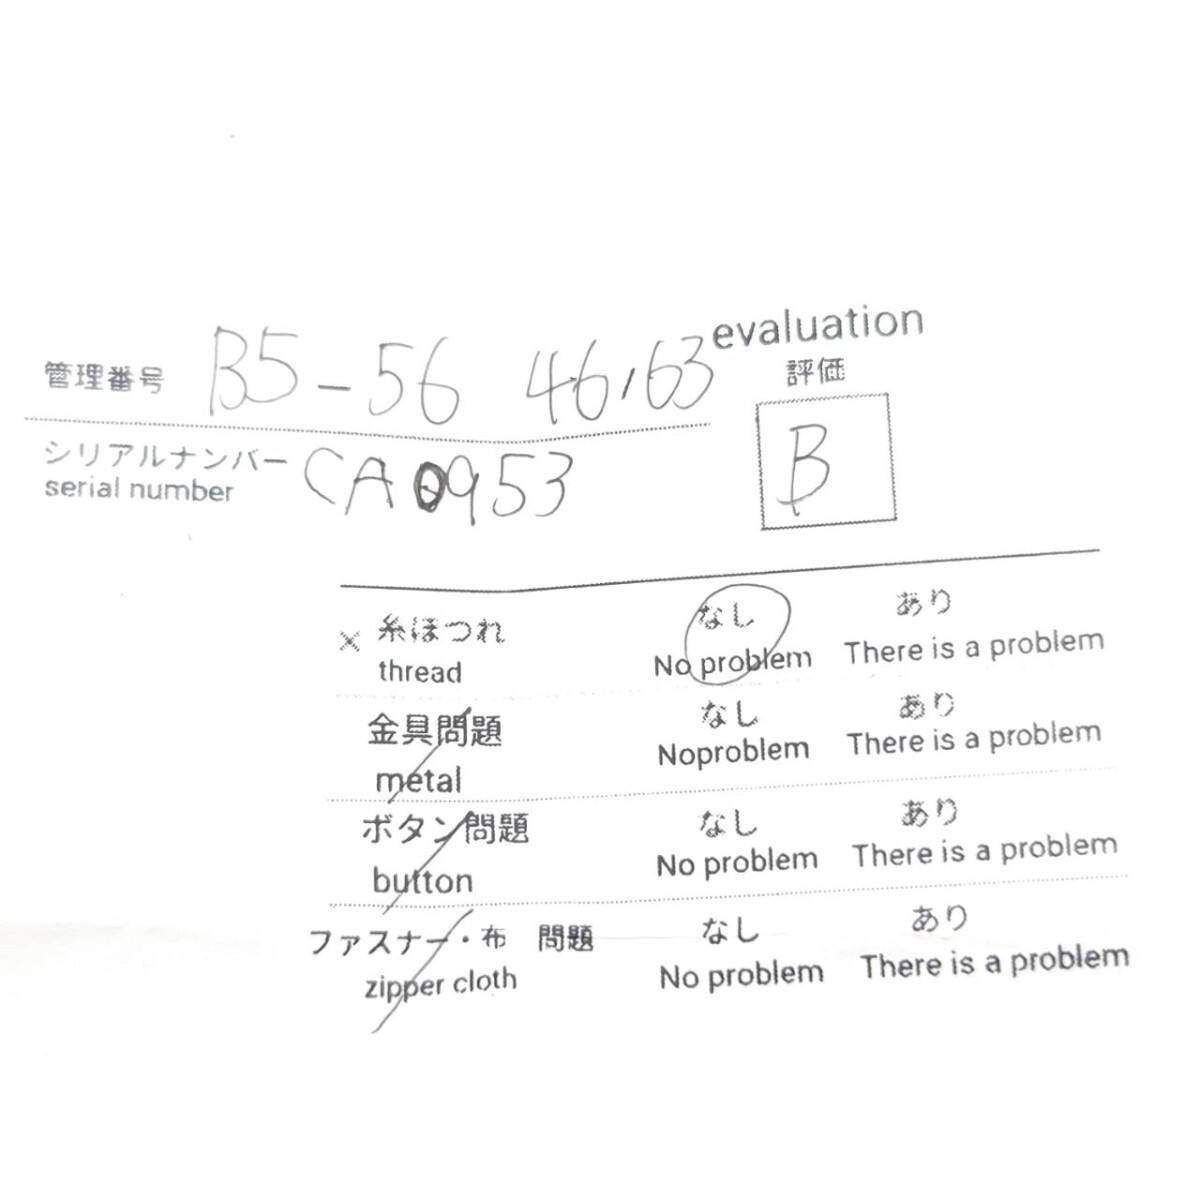 管理番号 B5-56 46,63
evaluation
評価
B
シリアルナンバー
serial number CA0953
× 糸ほつれ なし あり
thread No problem There is a problem
金具問題 なし あり
metal Noproblem There is a problem
ボタン問題 なし あり
button No problem There is a problem
ファスナー・布 問題 なし あり
zipper cloth No problem There is a problem